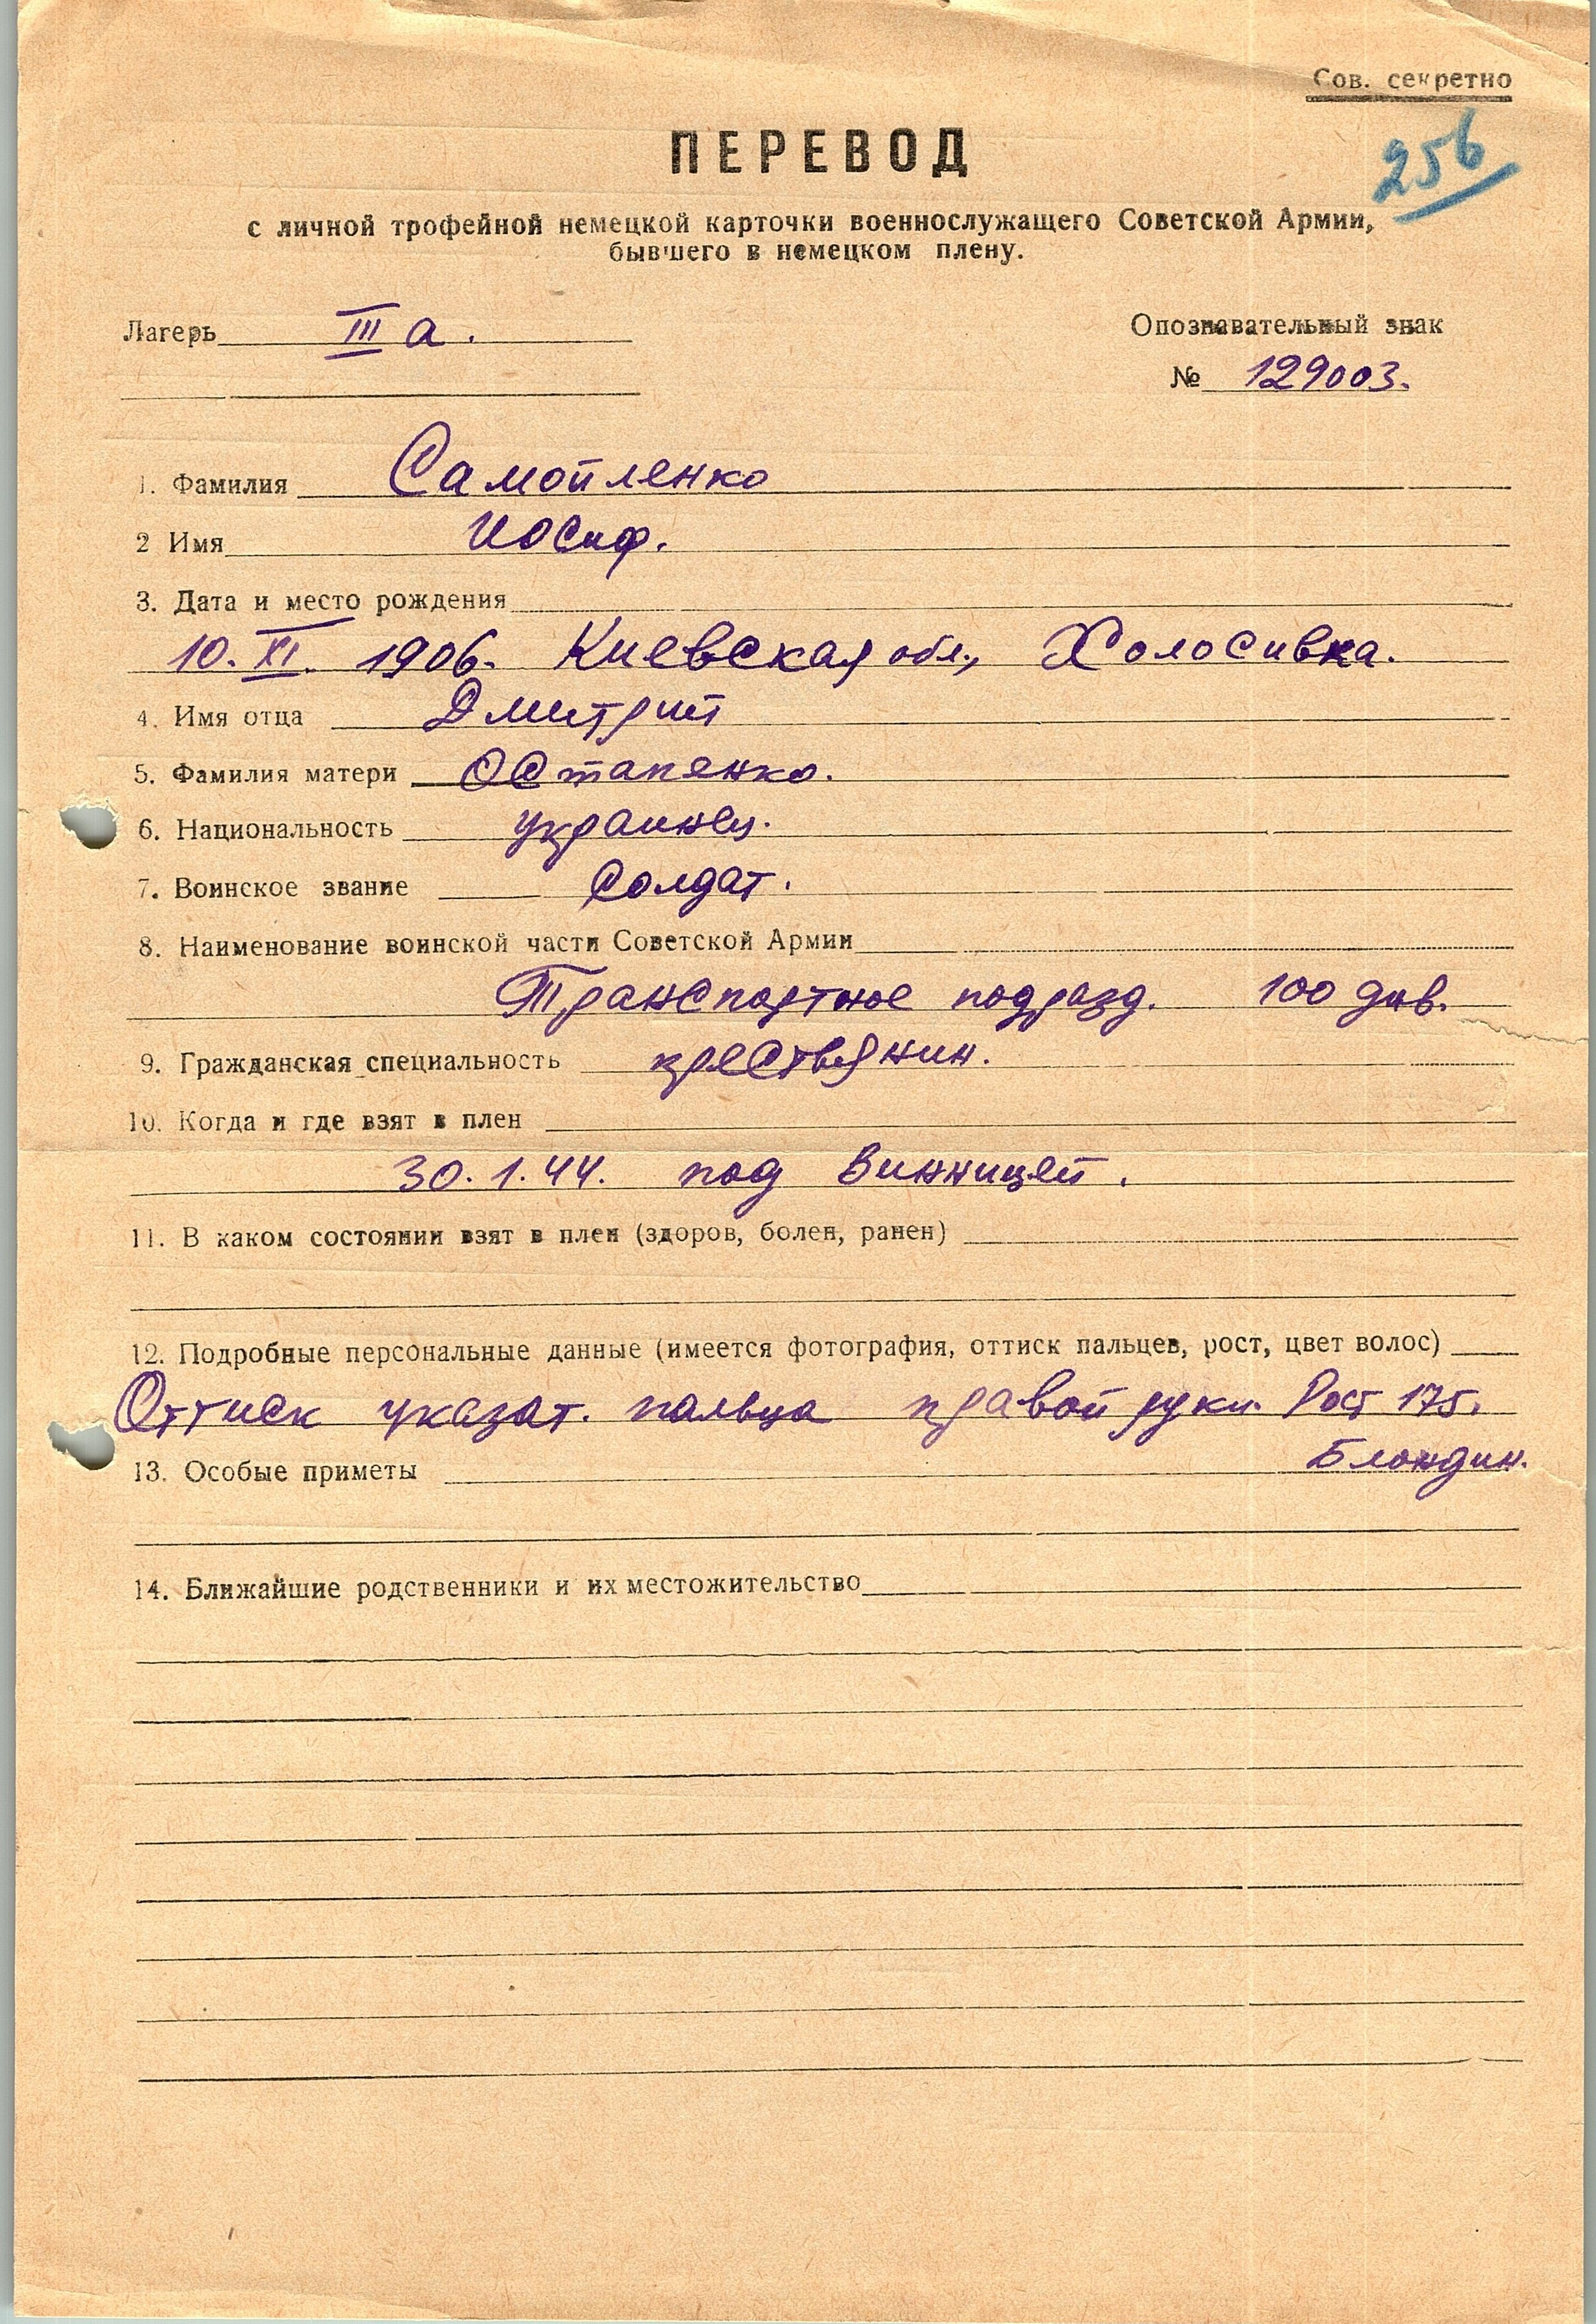 Сов. секретно
256
ПЕРЕВОД
с личной трофейной немецкой карточки военнослужащего Советской Армии,
бывшего в немецком плену.
Лагерь III а.
Опознавательный знак
№ 129003.
1. Фамилия Самойленко
2 Имя Иосиф.
3. Дата и место рождения
10. XI. 1906. Киевская обл., Холосивка.
4. Имя отца Дмитрий
5. Фамилия матери Остапенко.
6. Национальность украинец.
7. Воинское звание Солдат.
8. Наименование воинской части Советской Армии
Транспортное подразд. 100 див.
9. Гражданская специальность крестьянин.
10. Когда и где взят в плен
30.1.44. под Винницей.
11. В каком состоянии взят в плен (здоров, болен, ранен)
12. Подробные персональные данные (имеется фотография, оттиск пальцев, рост, цвет волос)
Оттиск указат. пальца правой руки. Рост 175.
Блондин.
13. Особые приметы
14. Ближайшие родственники и их местожительство